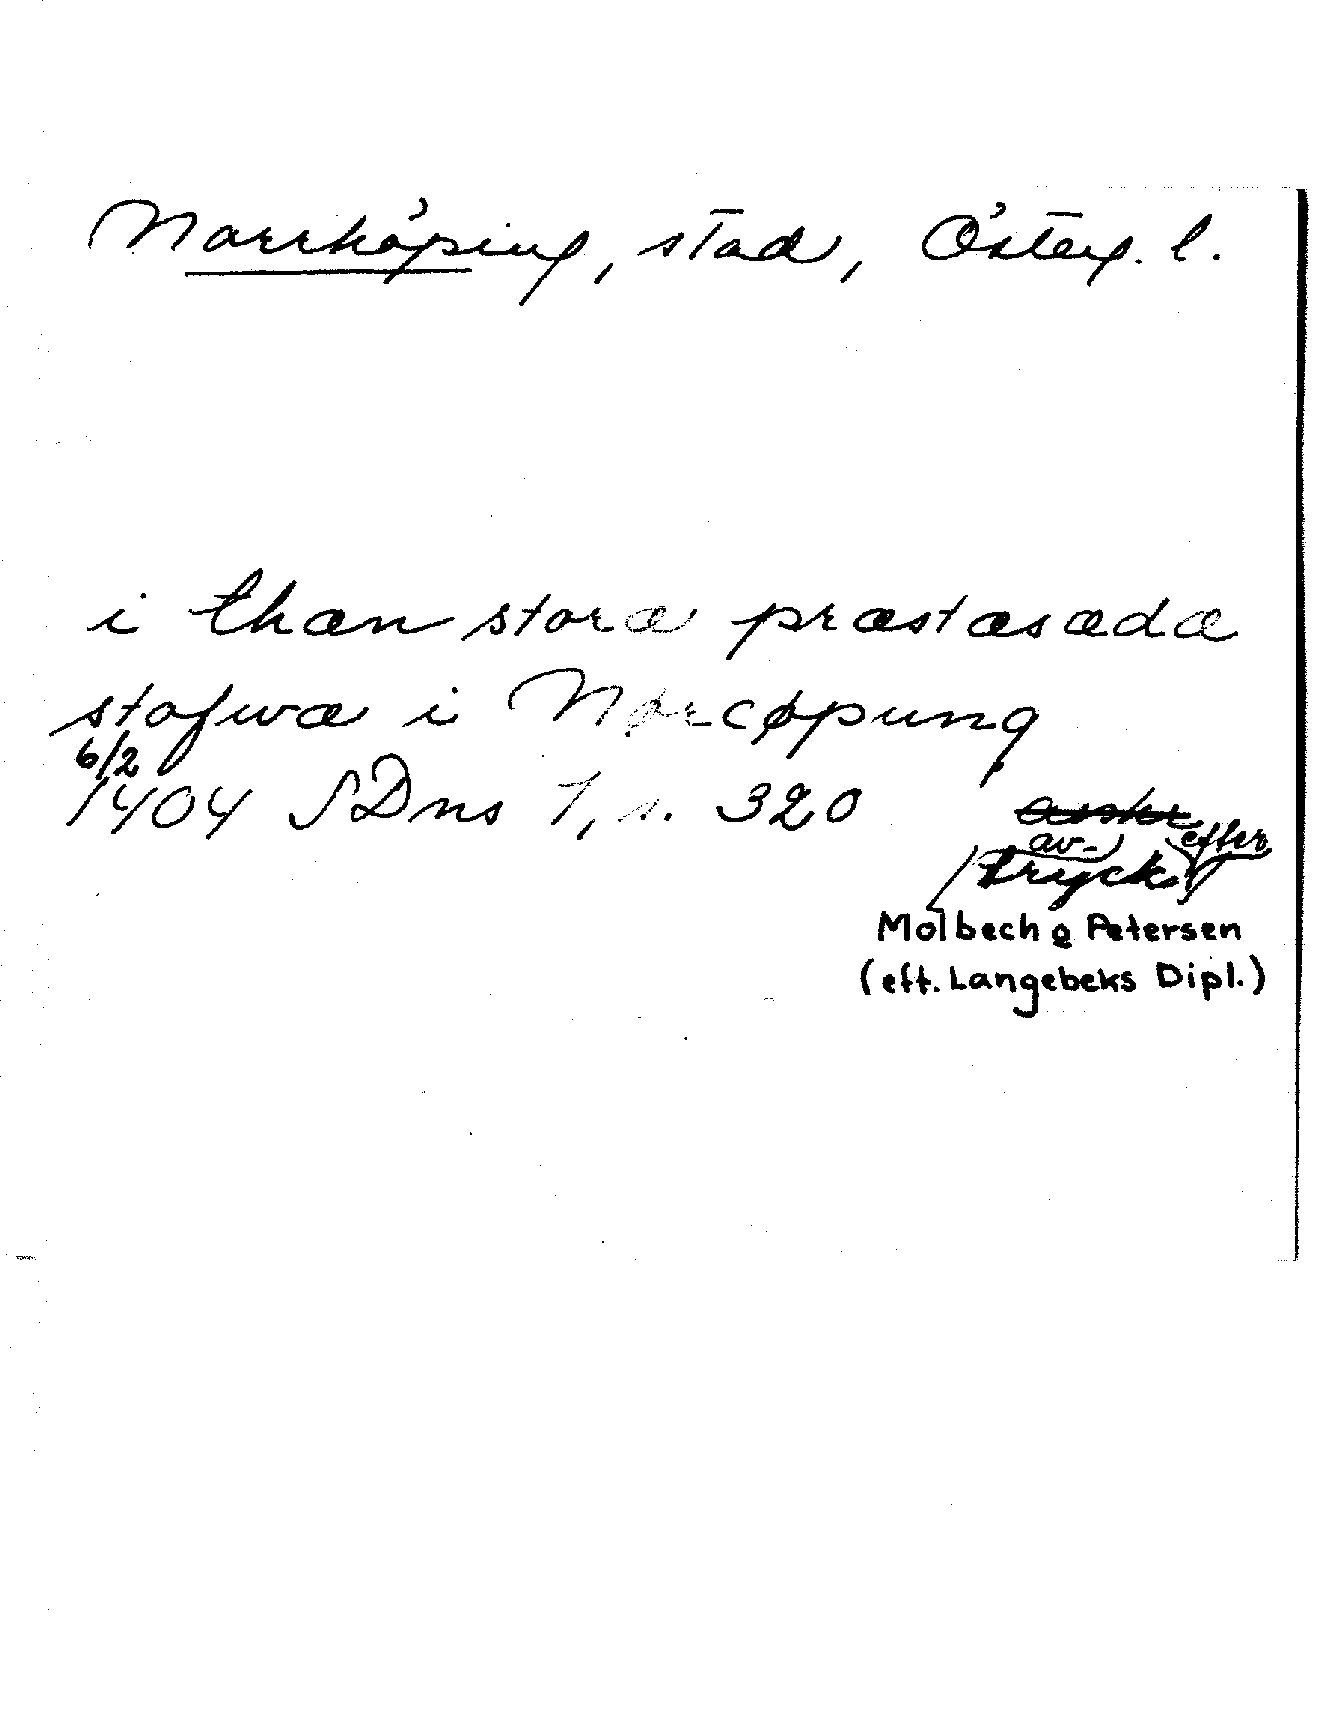 Norrköping, stad, Österg. l.
i then storæ præstæsædæ
stofwæ i Norcøpung
6/2
1404 SDns 1, s. 320
avskr
av- efter
tryck
Molbech o Petersen
(eft. Langebeks Dipl.)